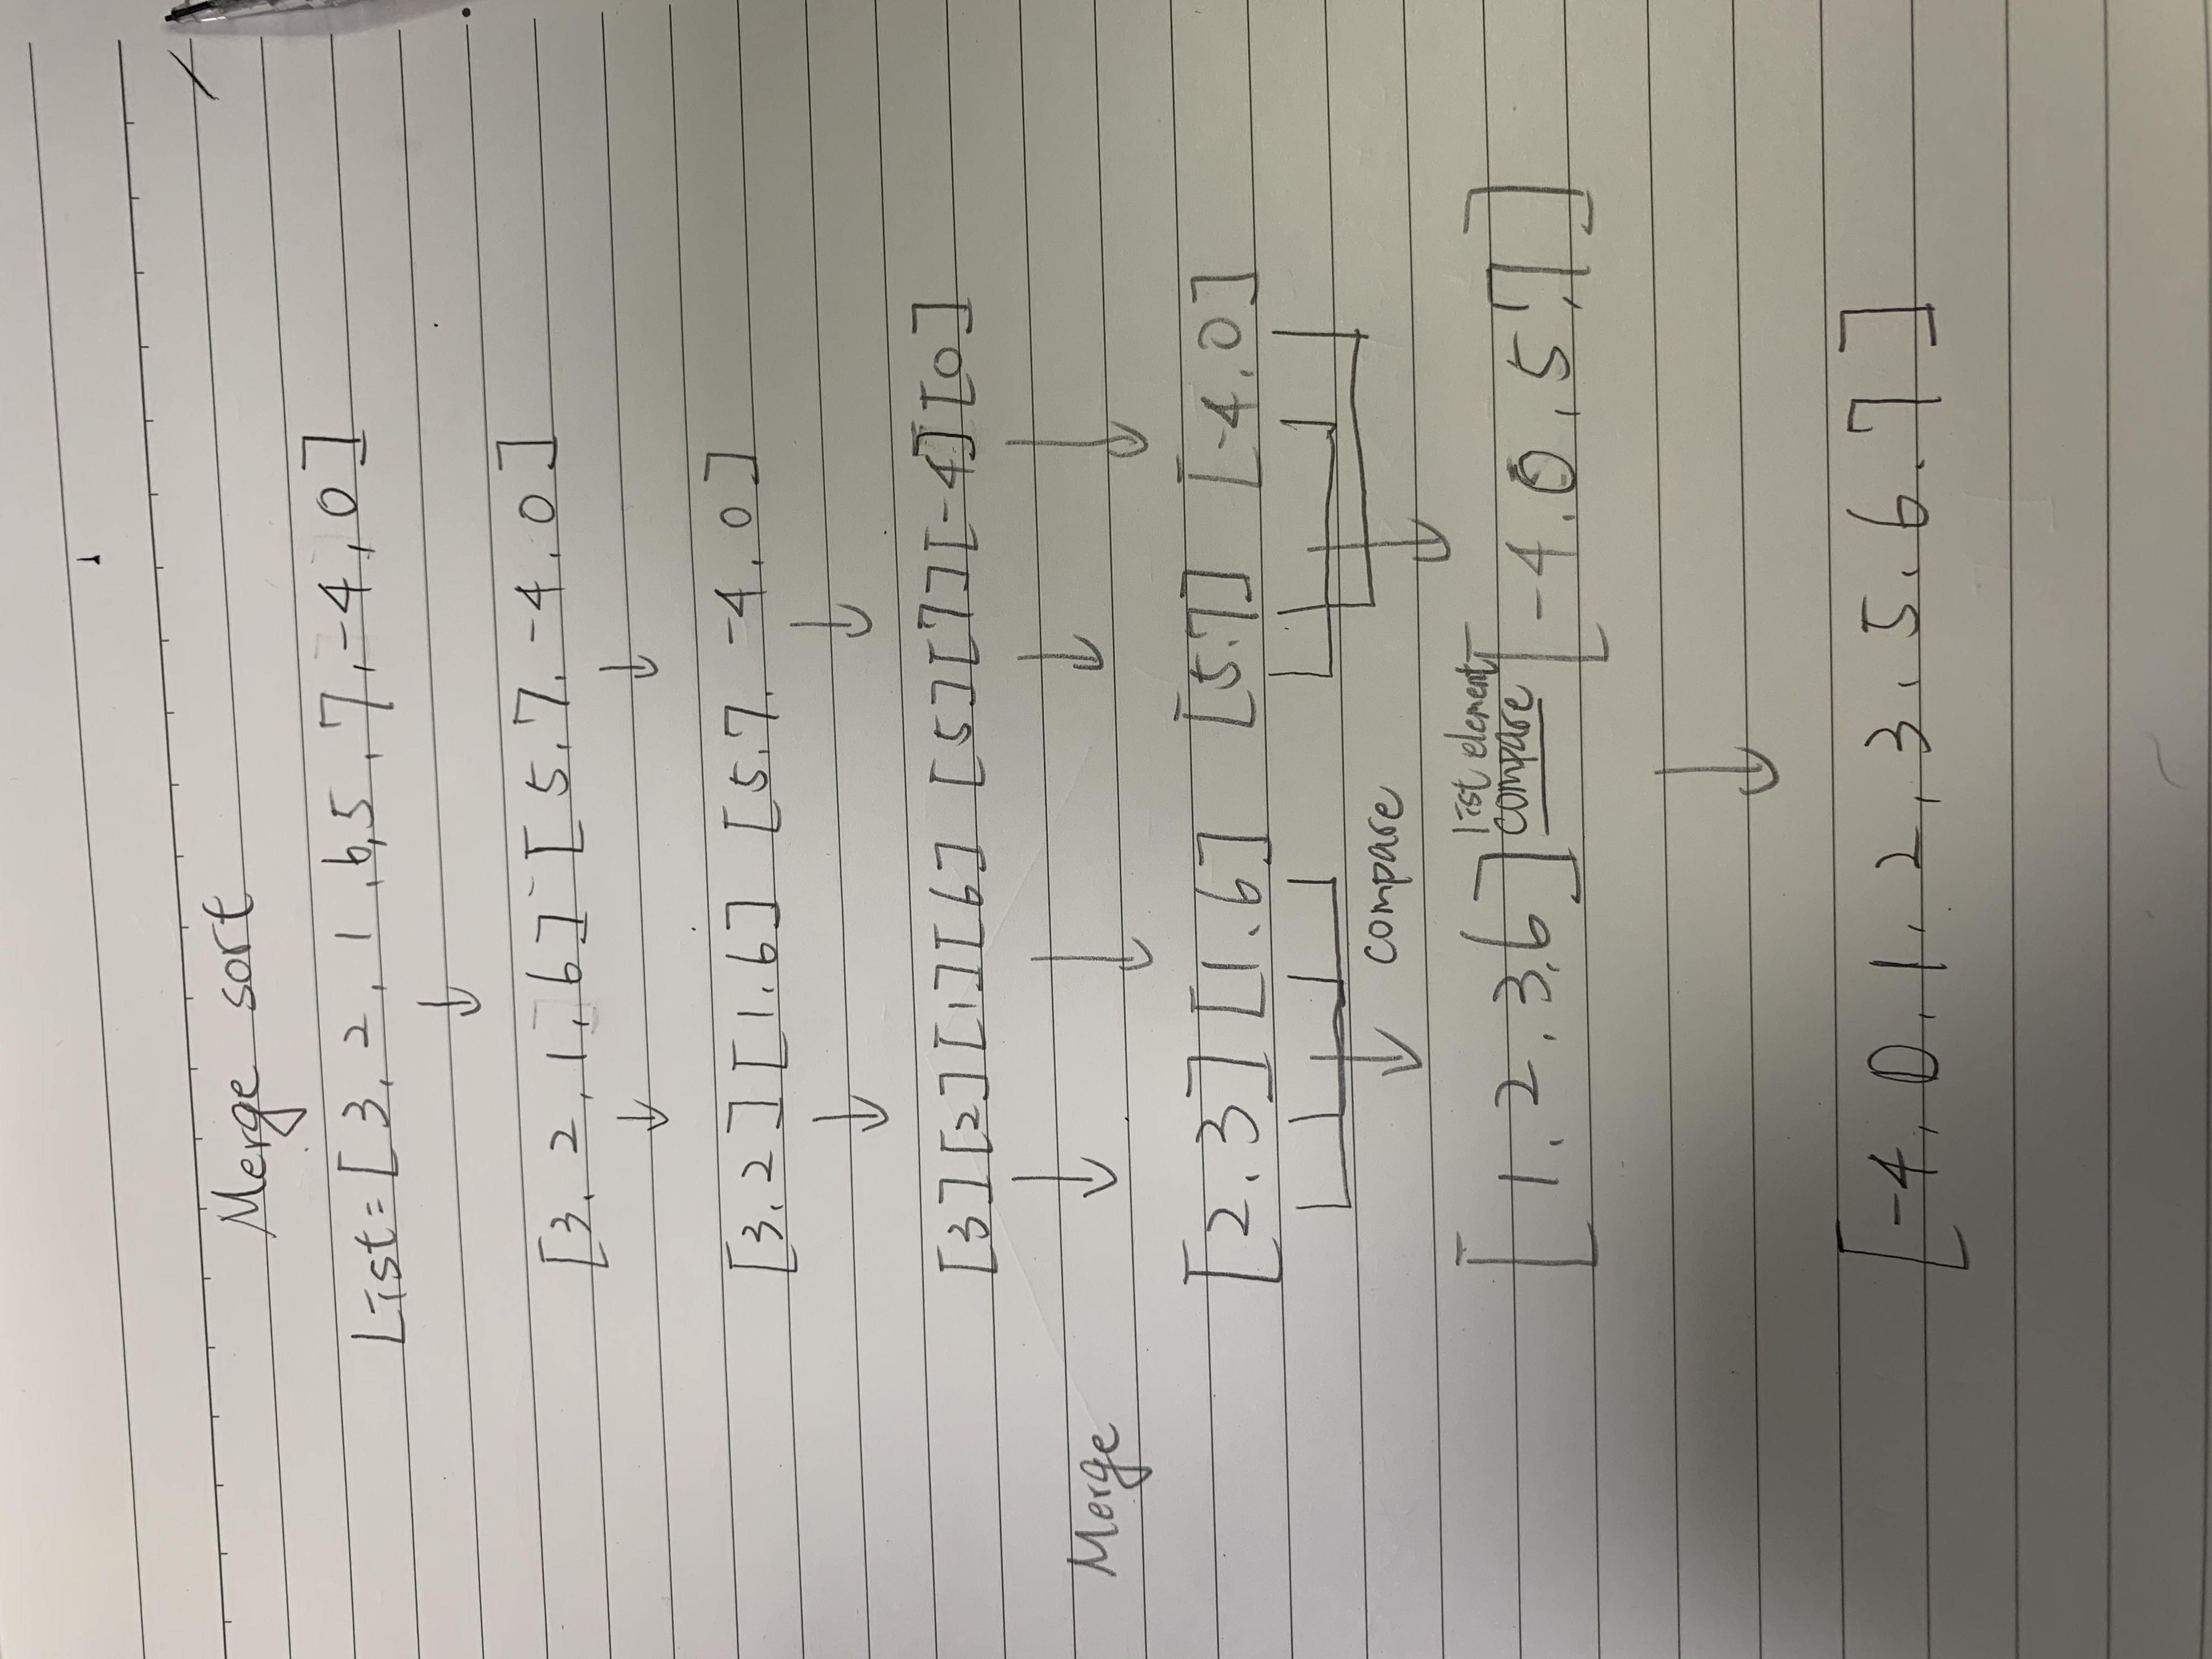 Merge sort
List = [ 3, 2, 1, 6, 5, 7, -4, 0 ]
[3, 2, 1, 6] [ 5, 7, -4, 0 ]
[3, 2] [1, 6] [5, 7, -4, 0 ]
[3] [2] [1] [6] [5] [7] [-4] [0]
Merge
[2, 3] [1, 6] [5, 7] [-4, 0]
compare
[1, 2, 3, 6] list element compare [-4, 0, 5, 7]
[-4, 0, 1, 2, 3, 5, 6, 7 ]